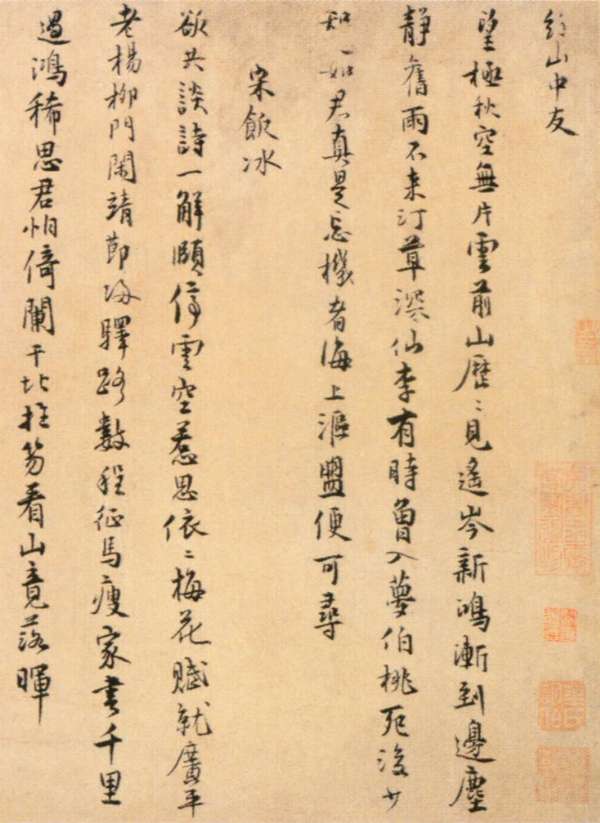 山中友
望極秋空無片雲前山歷〻見遙岑新鴻漸到邊塵
靜舊雨不来汀草深仙李有時曾入夢伯桃死後少
知如君真是忘機者海上漚盟便可尋
宋飯冰
欲共談詩一解頤停雲空惹思依〻梅花賦就廣平
老楊柳門閑靖節歸驛路數程征馬瘦家書千里
過鴻稀思君怕倚闌干北拄笏看山竟落暉